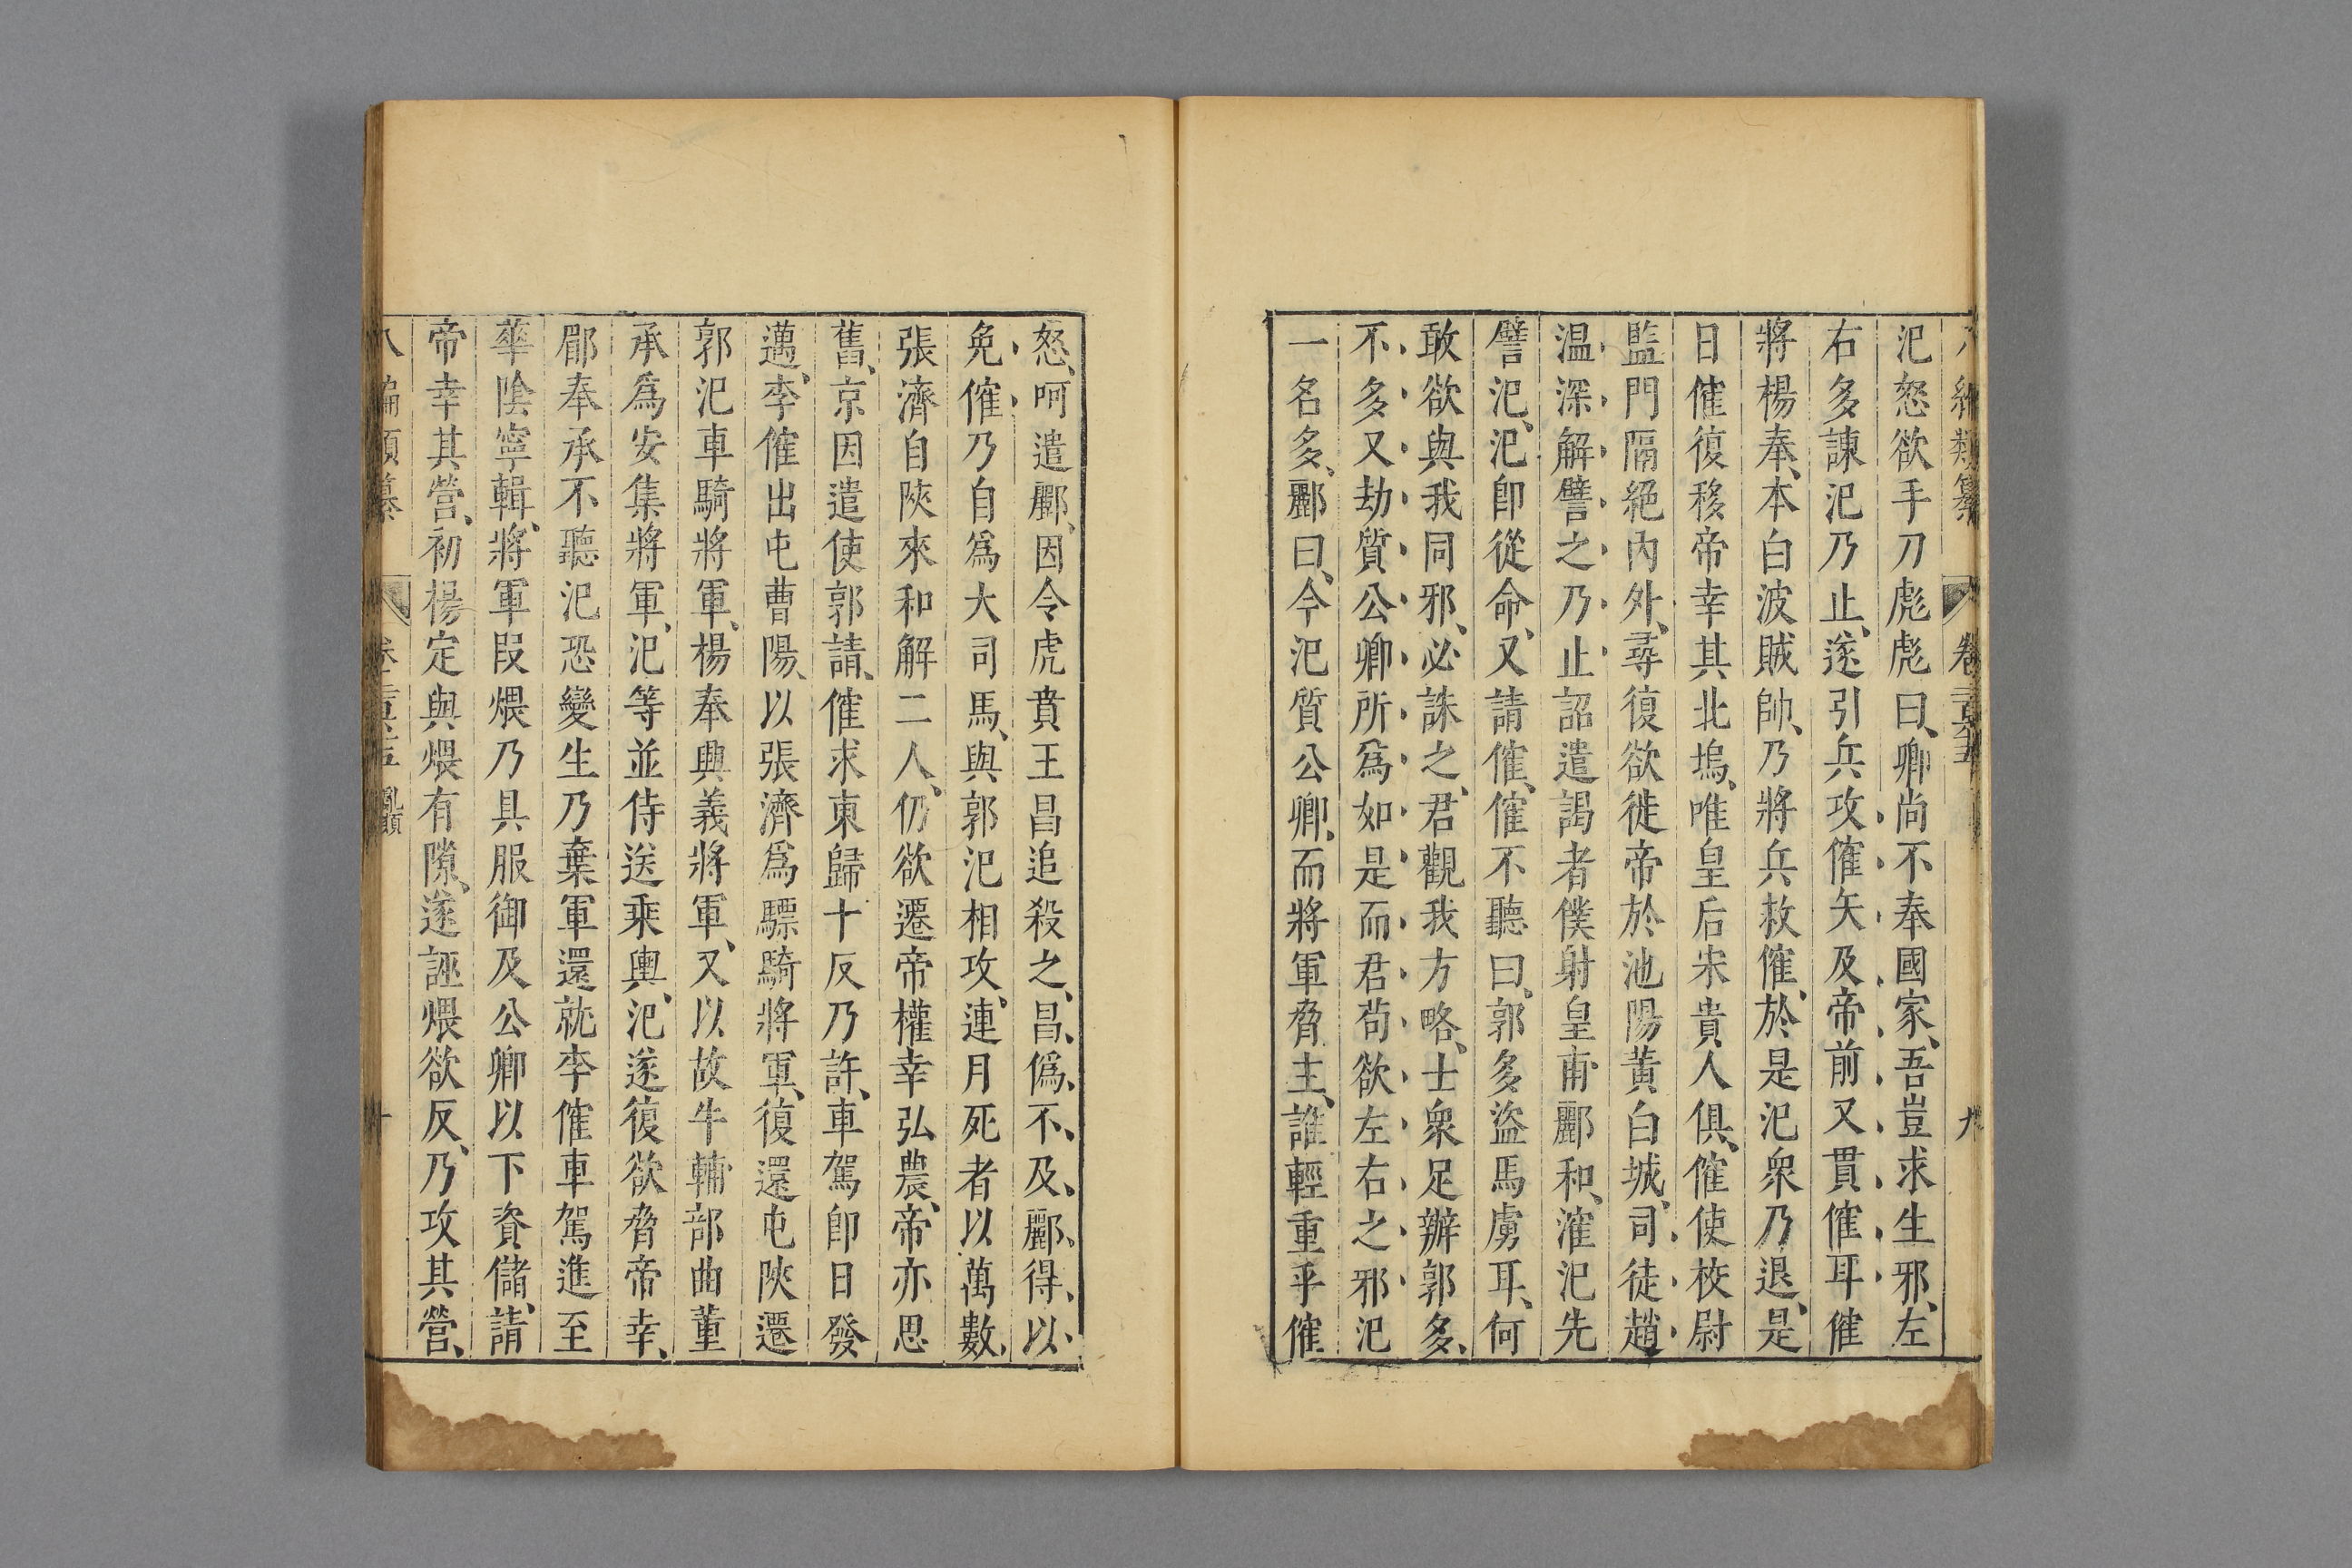 編類纂 卷 九
汜怒欲手刀彪彪曰、卿尚不奉國家、吾豈求生邪、左
右多諫汜乃止、遂引兵攻傕矢及帝前又貫傕耳傕
將楊奉、本白波賊帥、乃將兵救傕、於是汜衆乃退、是
日傕復移帝幸其北塢、唯皇后宋貴人俱、傕使校尉
監門隔絕內外、尋復欲徙帝於池陽黃白城、司徒趙
温深解譬之乃止詔遣謁者僕射皇甫酈和、傕汜先
譬汜、汜卽從命、又請傕、傕不聽曰、郭多盜馬虜耳、何
敢欲與我同邪、必誅之、君觀我方略、士衆足辦郭多、
不多又劫質公卿所爲如是而君苟欲左右之邪汜
一名多、酈曰、今汜質公卿、而將軍脅主、誰輕重乎傕
怒、呵遣酈、因令虎賁王昌追殺之、昌、僞、不、及、酈、得、以、
免傕乃自爲大司馬、與郭汜相攻、連月死者以萬數、
張濟自陝來和解二人、仍欲遷帝權幸弘農、帝亦思
舊、京因遣使郭請、傕求東歸十反乃許、車駕卽日發
邁、李傕出屯曹陽、以張濟爲驃騎將軍、復還屯陝遷
郭汜車騎將軍、楊奉興義將軍、又以故牛輔部曲董
承爲安集將軍、汜等並侍送乘輿、汜遂復欲脅帝幸、
郿奉承不聽汜恐變生乃棄軍還就李傕車駕進至
華陰寧輯、將軍叚煨乃具服御及公卿以下資儲、請
帝幸其營、初楊定與煨有隙、遂誣煨欲反、乃攻其營、
八編類纂 卷 十